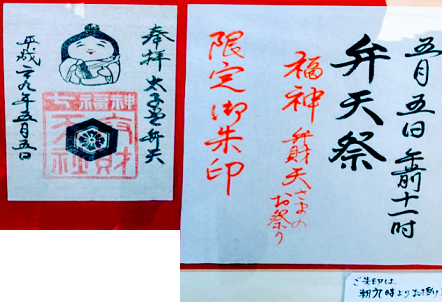 奉拝 太子堂弁天
平成二九年五月五日
七福神
五月五日 午前十一時
弁天祭
福神 弁財天さまのお祭り
限定御朱印
ご朱印は
朝九時より